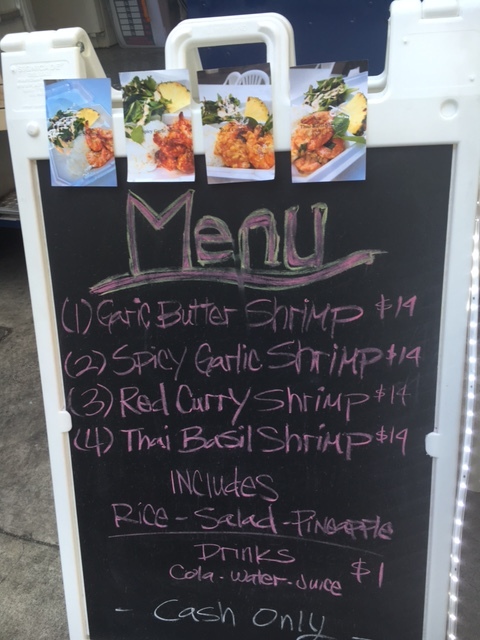 Menu
(1) Garic Butter Shrimp $14
(2) Spicy Garlic Shrimp $14
(3) Red Curry Shrimp $14
(4) Thai Basil Shrimp $14
INCLUDES
RICE - Salad - PINEAPPLE
DRINKS
Cola - Water - Juice $1
- Cash Only -